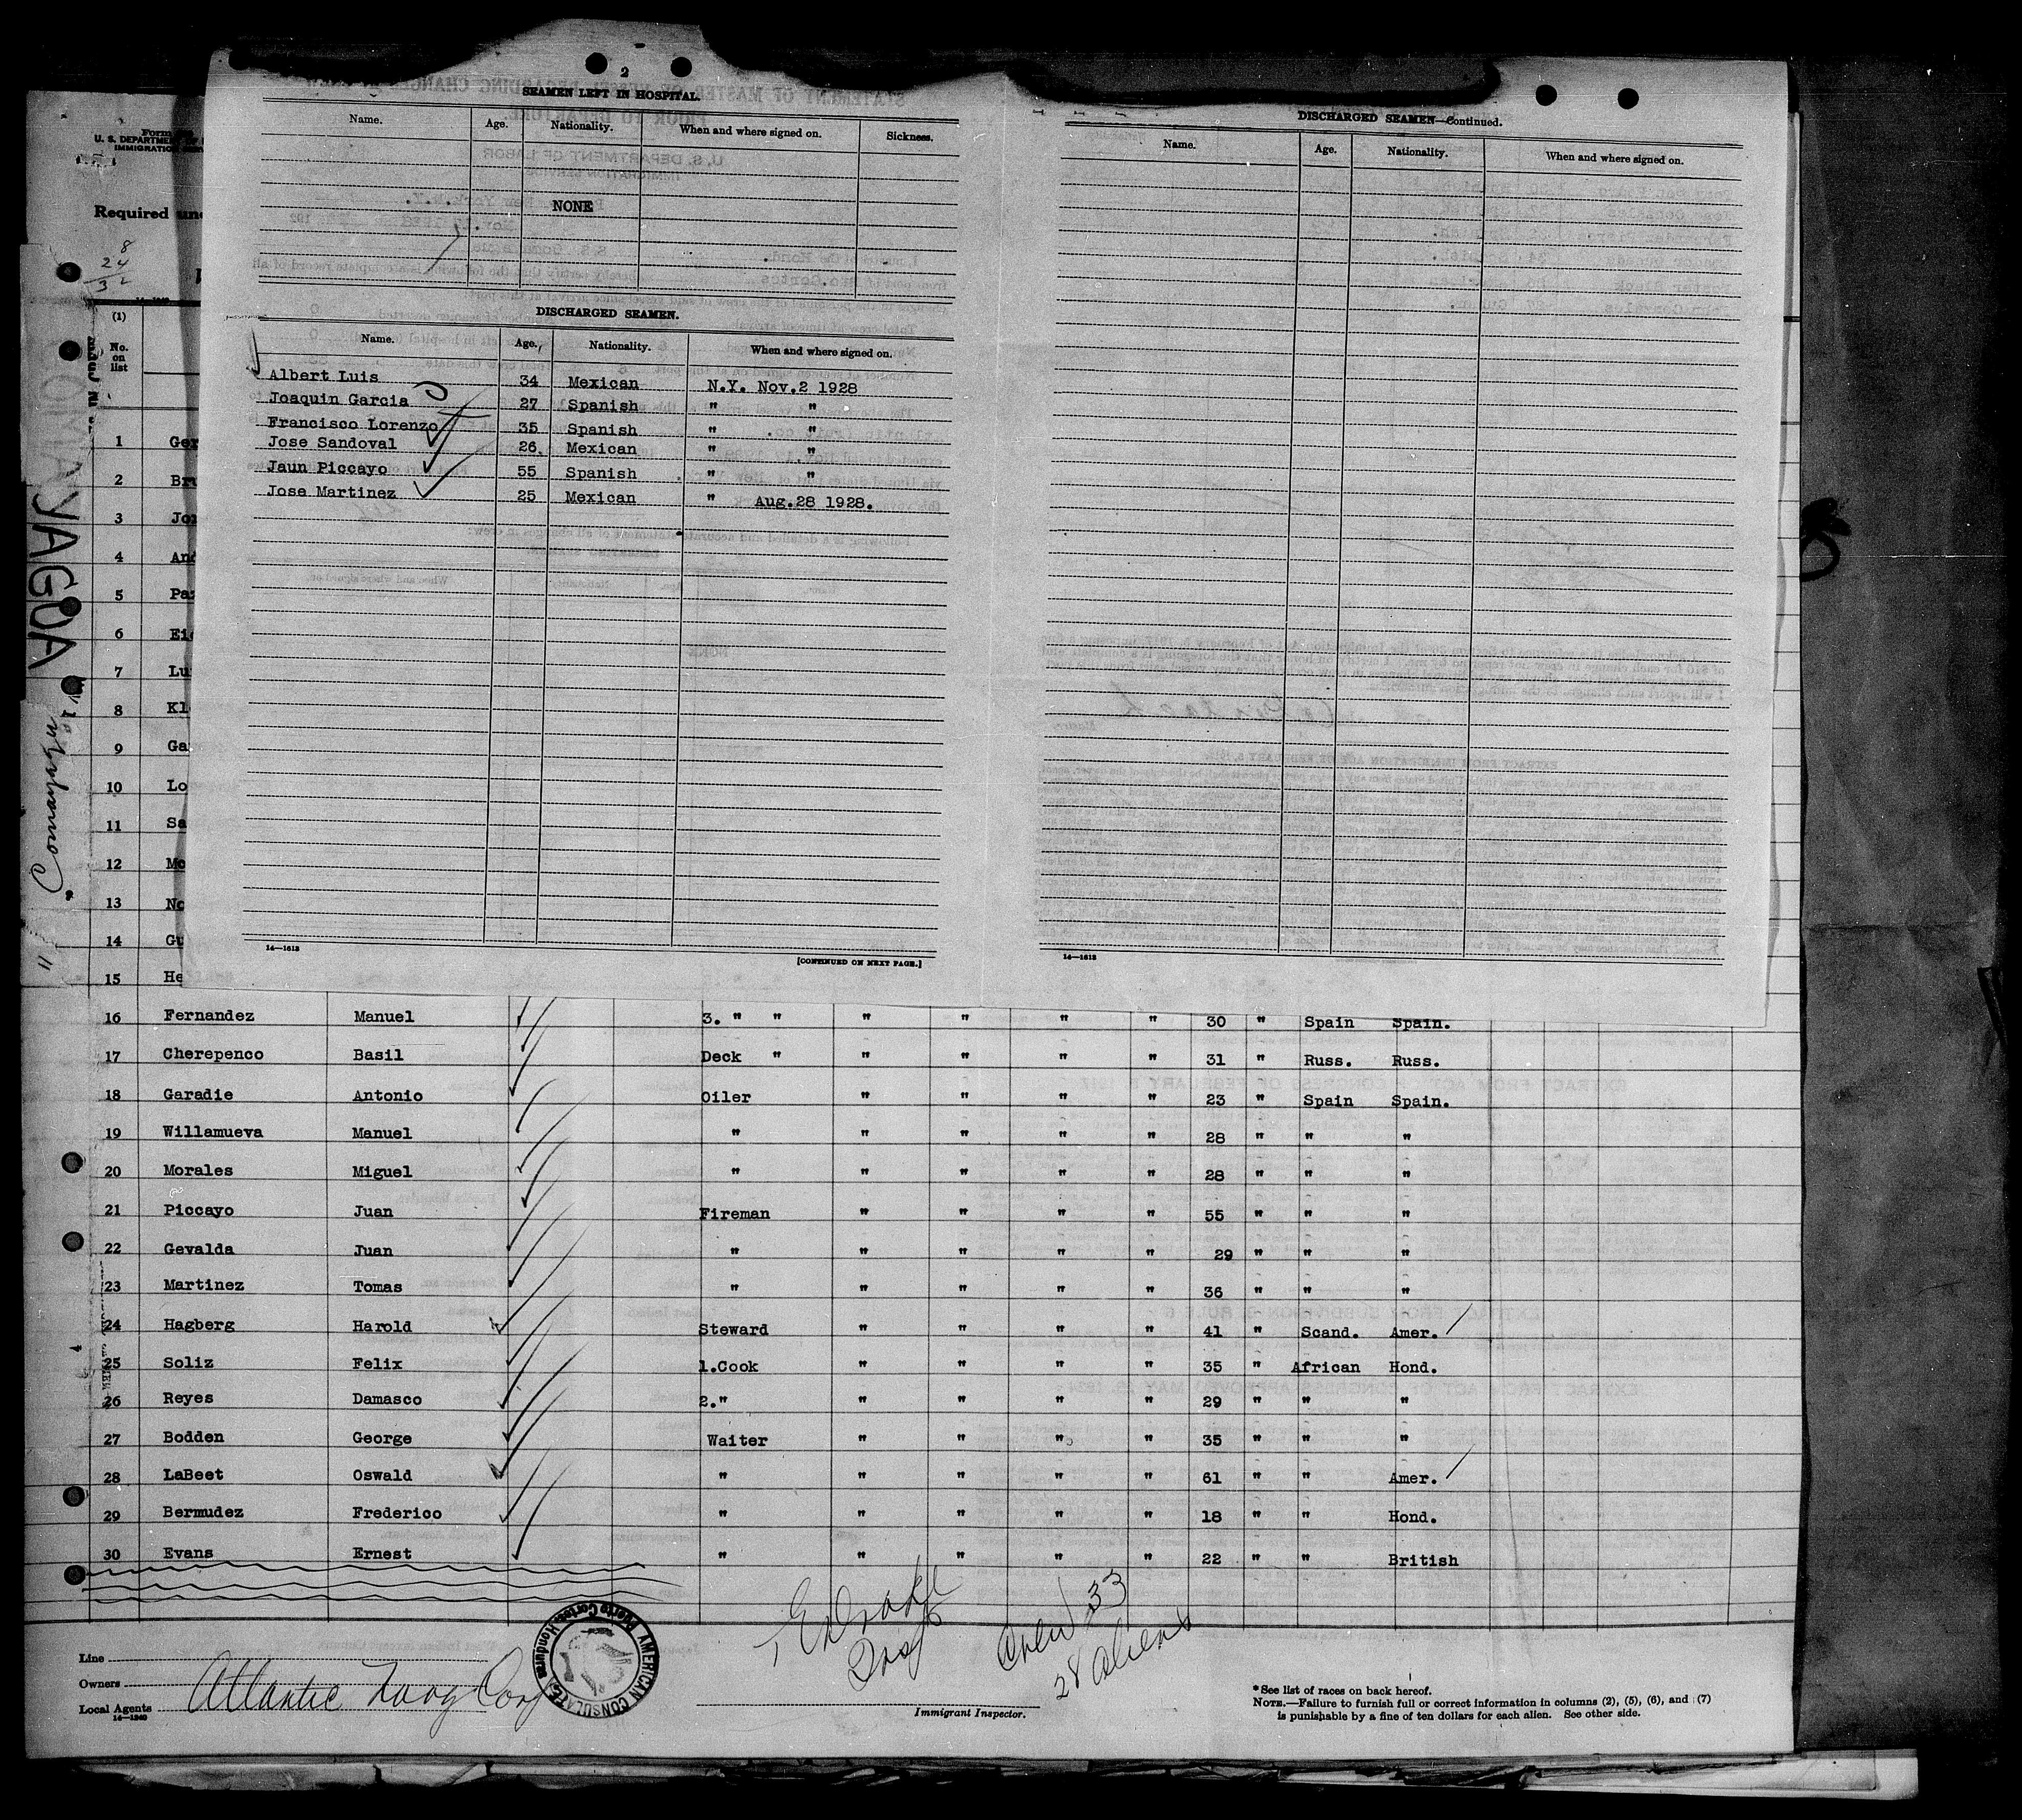 2
SEAMEN LEFT IN HOSPITAL.
Name. Age. Nationality. When and where signed on. Sickness.
NONE
DISCHARGED SEAMEN.
Name. Age. Nationality. When and where signed on.
Albert Luis 34 Mexican N.Y. Nov.2 1928
Joaquin Garcia 27 Spanish " "
Francisco Lorenzo 35 Spanish " "
Jose Sandoval 26 Mexican " "
Jaun Piccayo 55 Spanish " "
Jose Martinez 25 Mexican " Aug.28 1928.
14—1613
[CONTINUED ON NEXT PAGE.]
DISCHARGED SEAMEN—Continued.
Name. Age. Nationality. When and where signed on.
14—1613
Form
U. S. DEPARTMENT OF
IMMIGRATION
Required und
8
24
32
(1)
No.
on
list
YAGUA
Company
"
1 Ger
2 Bru
3 Jor
4 And
5 Paz
6 Eic
7 Lui
8 Kl
9 Ga
10 Lo
11 Sa
12 Mo
13 No
14 Gu
15 He
16 Fernandez Manuel 3. " " " " " " 30 " Spain Spain.
17 Cherepenco Basil Deck " " " " " 31 " Russ. Russ.
18 Garadie Antonio Oiler " " " " 23 " Spain Spain.
19 Willamueva Manuel " " " " " 28 " " "
20 Morales Miguel " " " " " 28 " " "
21 Piccayo Juan Fireman " " " " 55 " " "
22 Gevalda Juan " " " " " 29 " " "
23 Martinez Tomas " " " " " 36 " " "
24 Hagberg Harold Steward " " " " 41 " Scand. Amer.
25 Soliz Felix 1.Cook " " " " 35 " African Hond.
26 Reyes Damasco 2." " " " " 29 " " "
27 Bodden George Waiter " " " " 35 " " "
28 LaBeet Oswald " " " " " 61 " " Amer.
29 Bermudez Frederico " " " " " 18 " " Hond.
30 Evans Ernest " " " " " 22 " " British
Crew 33
28 Aliens
Line
Owners
Local Agents Atlantic Navg Corp
14—1240
AMERICAN CONSULATE
Puerto Cortes, Honduras
Immigrant Inspector.
*See list of races on back hereof.
NOTE.—Failure to furnish full or correct information in columns (2), (5), (6), and (7)
is punishable by a fine of ten dollars for each alien. See other side.